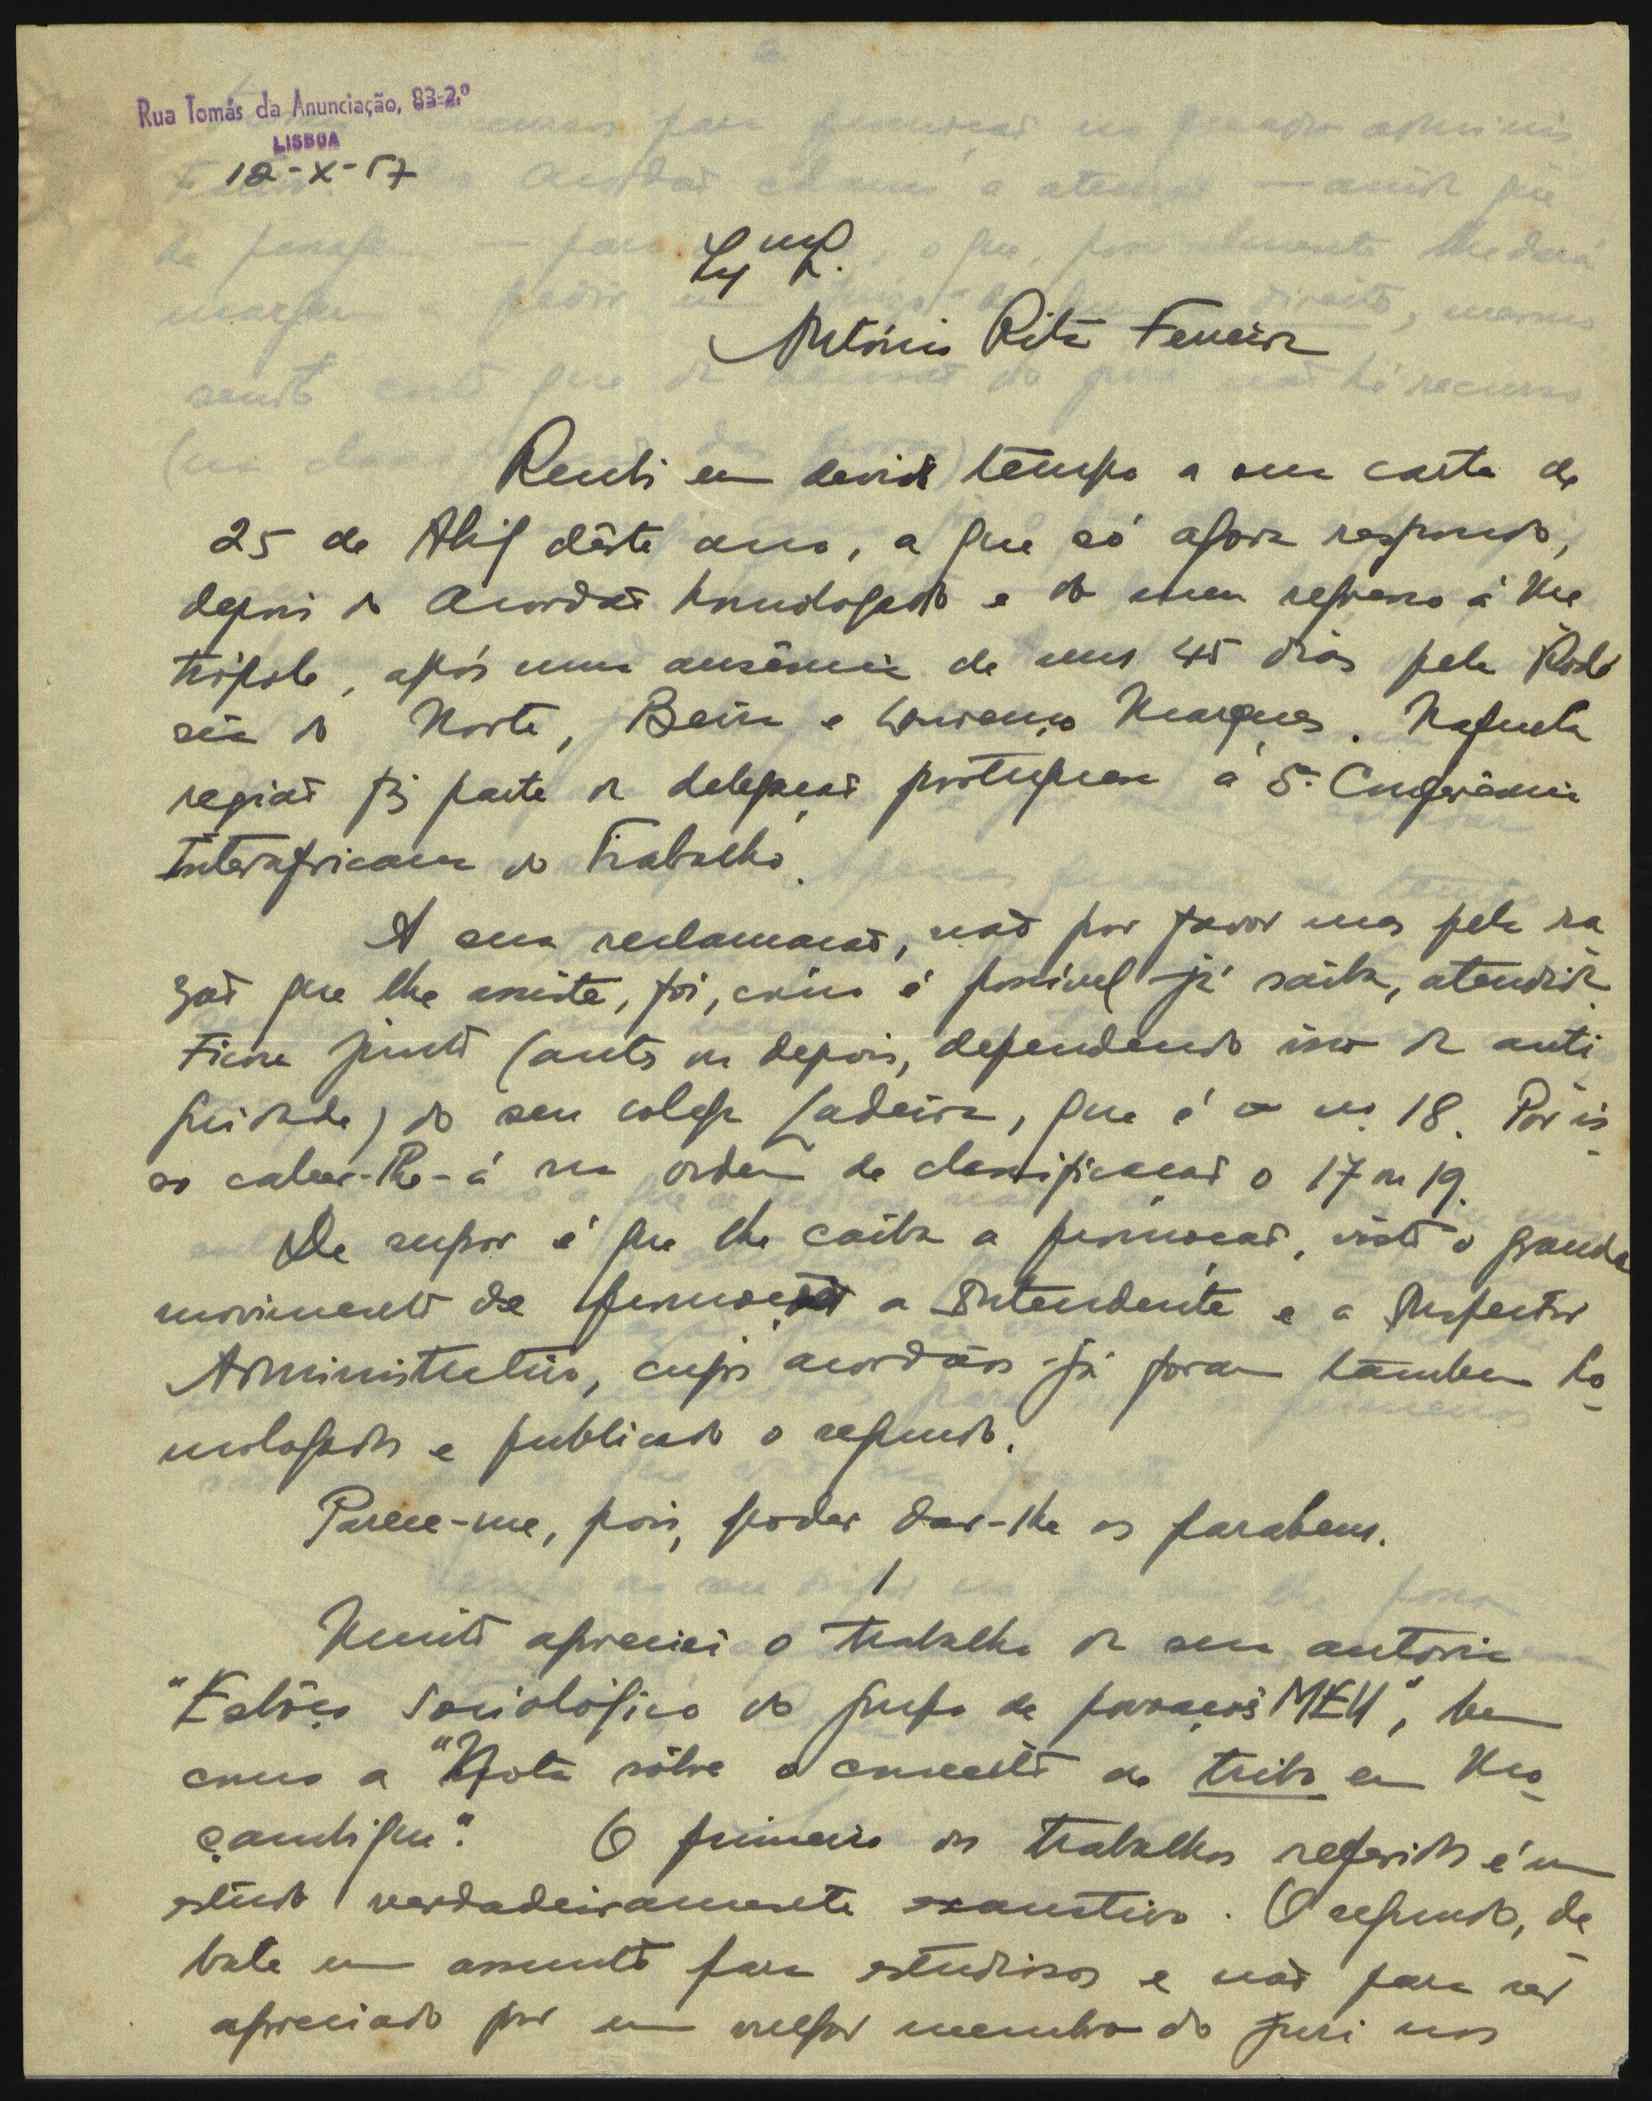 Rua Tomás da Anunciação, 83-2.º
LISBOA
12-X-57
António Rita Ferreira
Recebi em devido tempo a sua carta de
25 de Abril dêste ano, a que só agora respondo,
depois do Acordão homologado e do meu regresso à Me
trópole, após uma ausência de uns 45 dias pela Rodé
sia do Norte, Beira e Lourenço Marques. Naquela
região fiz parte da delegação portuguesa à 5.ª Conferência
Interafricana do Trabalho.
A sua reclamação, não por favor mas pela ra
zão que lhe assiste, foi, como é possivel já saiba, atendida.
Ficou junto (antes ou depois, dependendo isso da anti
guidade) do seu colega Ladeira, que é o no. 18. Por is
so caber-lhe-á na ordem de classificação o 17 ou 19.
De supor é que lhe caiba a promoção, visto o grande
movimento de promoção a Intendente e a Inspector
Administrativo, cujos acordãos já foram tambem ho-
mologados e publicado o segundo.
Parece-me, pois, poder dar-lhe os parabens.
/
Muito apreciei o trabalho da sua autoria
"Esbôço Sociológico do grupo de povoações MEU", bem
como a "Nota sôbre o conceito de tribo em Mo-
çambique". O primeiro dos trabalhos referidos é um
estudo verdadeiramente exaustivo. O segundo, de-
bate um assunto para estudiosos e não para ser
apreciado por um vulgar membro do juri nos